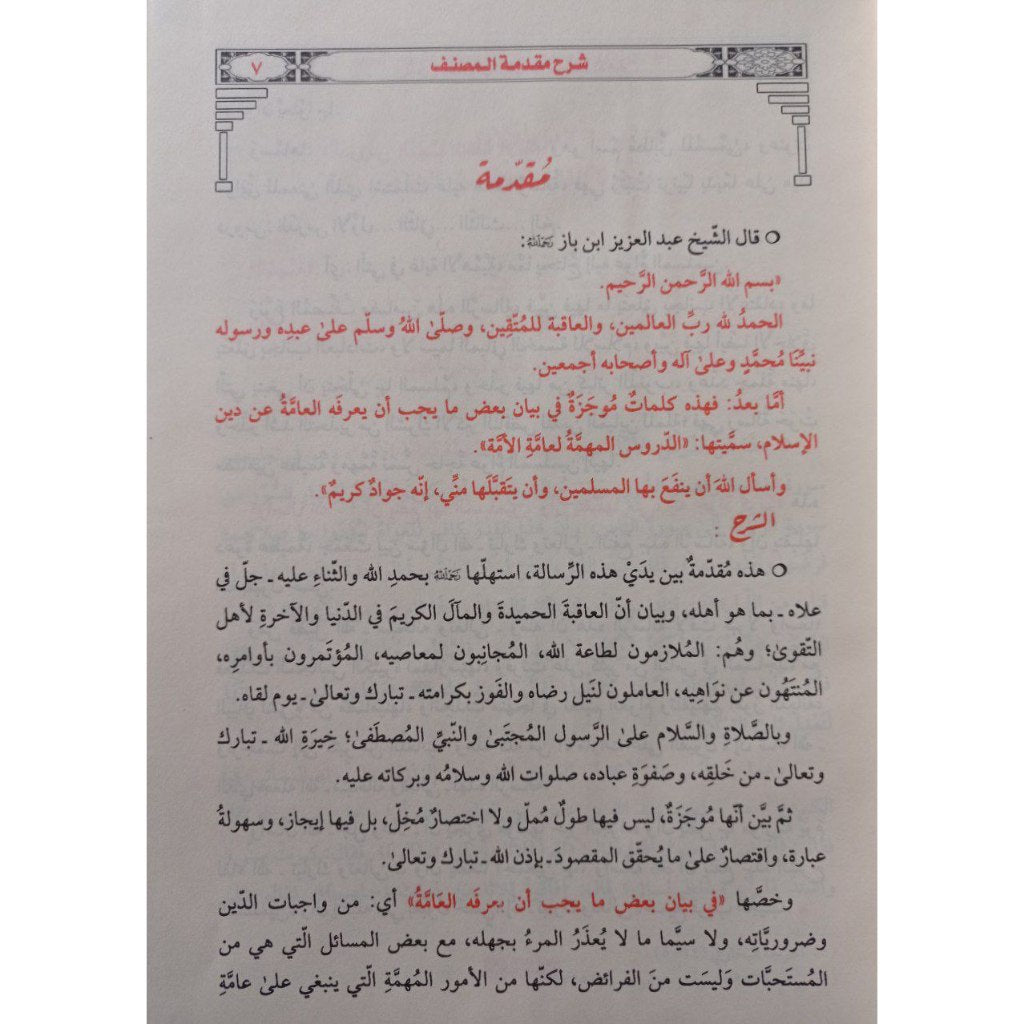 شرح مقدمة المصنف
٧
مُقدّمة
○ قال الشّيخ عبد العزيز ابن باز رَحِمَهُ اللَّهُ:
«بسم الله الرَّحمن الرَّحيم.
الحمدُ لله ربِّ العالمين، والعاقبة للمُتَّقِين، وصلَّىٰ اللهُ وسلَّم علىٰ عبدِه ورسوله
نبيِّنَا مُحمَّدٍ وعلىٰ آله وأصحابه أجمعين.
أمَّا بعدُ: فهذه كلماتٌ مُوجَزَةٌ في بيان بعض ما يجب أن يعرفَه العامَّةُ عن دين
الإسلام، سمَّيتها: «الدّروس المهمَّةُ لعامَّةِ الأمَّة».
وأسأل اللهَ أن ينفَعَ بها المسلمين، وأن يتَقبَّلَها منِّي، إنّه جوادٌ كريمٌ».
الشرح :
○ هذه مُقدّمةٌ بين يدَيْ هذه الرِّسالة، استهلّها رَحِمَهُ اللَّهُ بحمدِ الله والثّناءِ عليه ـ جلّ في
علاه ـ بما هو أهله، وبيان أنّ العاقبةَ الحميدةَ والمآلَ الكريمَ في الدّنيا والآخرةِ لأهل
التّقوىٰ؛ وهُم: المُلازمون لطاعة الله، المُجانِبون لمعاصيه، المُؤتَمرون بأوامرِه،
المُنتَهُون عن نوَاهِيه، العاملون لنَيل رضاه والفَوز بكرامته ـ تبارك وتعالىٰ ـ يوم لقاه.
وبالصَّلاةِ والسَّلام علىٰ الرَّسول المُجتَبىٰ والنّبيِّ المُصطَفىٰ؛ خِيرَةِ الله ـ تبارك
وتعالىٰ ـ من خَلقِه، وصَفوَةِ عباده، صلوات الله وسلامُه وبركاته عليه.
ثمَّ بيَّن أنّها مُوجَزَةٌ، ليس فيها طولٌ مُملّ ولا اختصارٌ مُخِلّ، بل فيها إيجاز، وسهولةُ
عبارة، واقتصارٌ علىٰ ما يُحقّق المقصودَ ـ بإذن الله ـ تبارك وتعالىٰ.
وخصَّها «في بيان بعض ما يجب أن يعرفَه العَامَّةُ» أي: من واجبات الدّين
وضروريَّاتِه، ولا سيَّما ما لا يُعذَرُ المرءُ بجهله، مع بعض المسائل الّتي هي من
المُستَحبَّات وَليسَت منَ الفرائض، لكنّها من الأمور المُهمَّةِ الّتي ينبغي علىٰ عامَّةِ